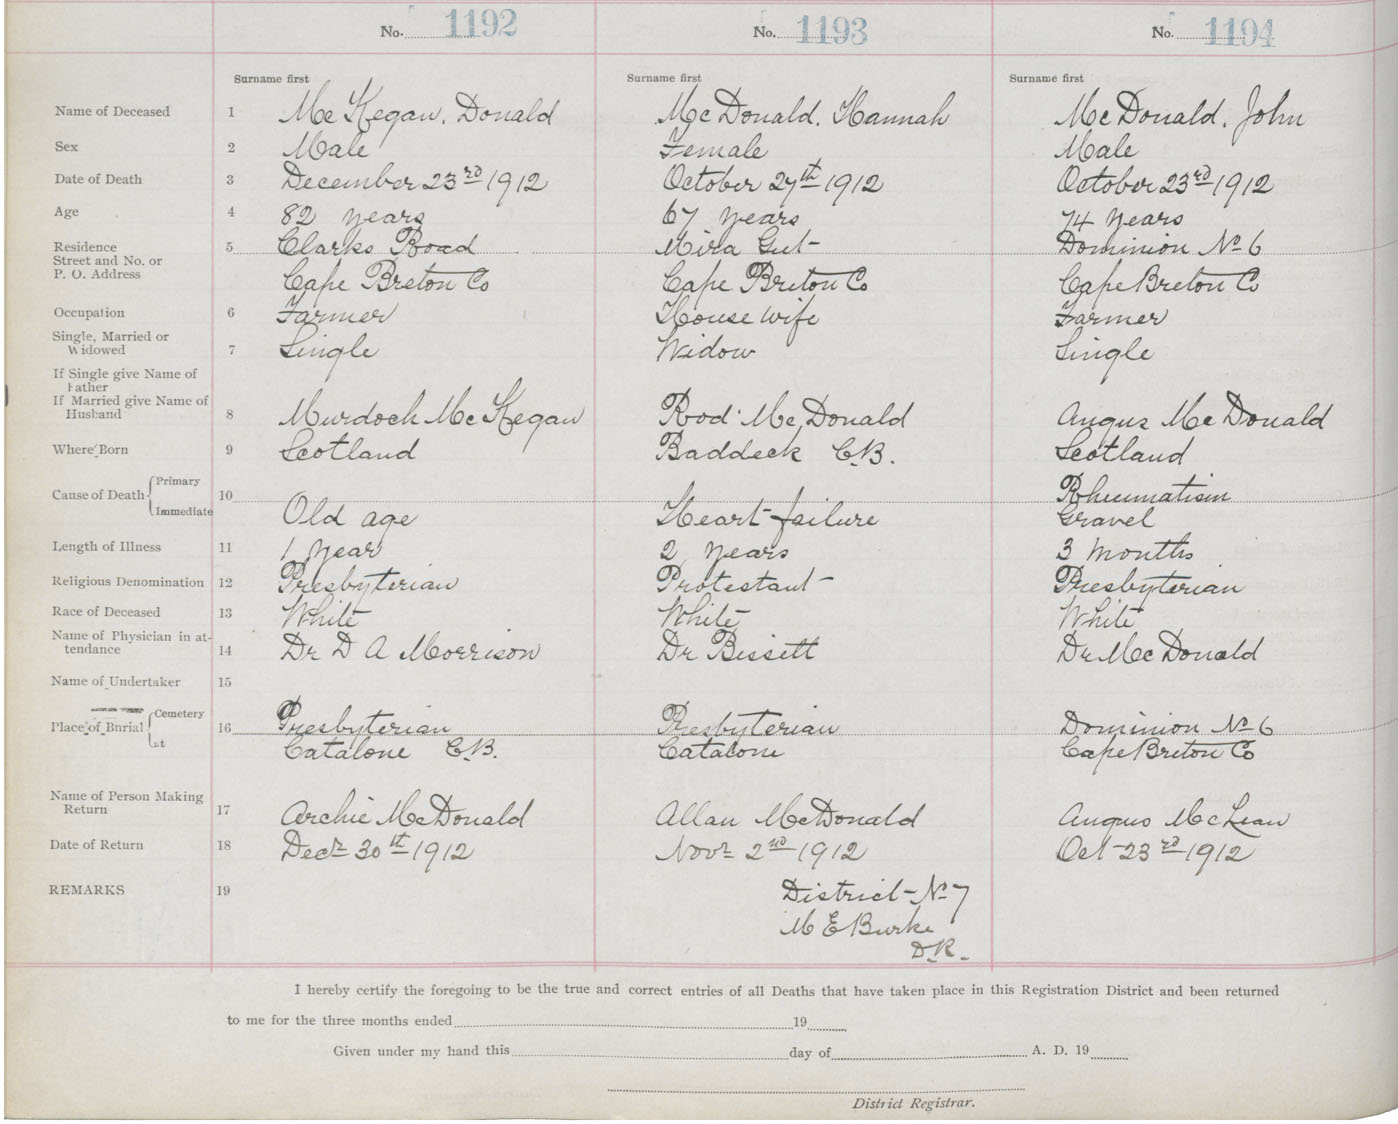 No. 1192 No. 1193 No. 1194
Surname first Surname first Surname first
Name of Deceased 1 McKegan, Donald McDonald, Hannah McDonald, John
Sex 2 Male Female Male
Date of Death 3 December 23rd 1912 October 27th 1912 October 23rd 1912
Age 4 82 years 67 years 74 years
Residence 5 Clarks Road Mira Gut Dominion No 6
Street and No. or
P. O. Address Cape Breton Co Cape Breton Co Cape Breton Co
Occupation 6 Farmer House wife Farmer
Single, Married or
Widowed 7 Single Widow Single
If Single give Name of
Father
If Married give Name of
Husband 8 Murdoch McKegan Rod McDonald Angus McDonald
Where Born 9 Scotland Baddeck C.B. Scotland
Cause of Death Primary 10 Rheumatism
Immediate Old age Heart failure Gravel
Length of Illness 11 1 year 2 years 3 months
Religious Denomination 12 Presbyterian Protestant Presbyterian
Race of Deceased 13 White White White
Name of Physician in at-
tendance 14 Dr D A Morrison Dr Bissett Dr McDonald
Name of Undertaker 15
Place of Burial Cemetery 16 Presbyterian Presbyterian Dominion No 6
at Catalone C.B. Catalone Cape Breton Co
Name of Person Making
Return 17 Archie McDonald Allan McDonald Angus McLean
Date of Return 18 Decr 30th 1912 Novr 2nd 1912 Oct 23rd 1912
REMARKS 19 District No 7
M E Burke
D.R.
I hereby certify the foregoing to be the true and correct entries of all Deaths that have taken place in this Registration District and been returned
to me for the three months ended 19
Given under my hand this day of A. D. 19
District Registrar.